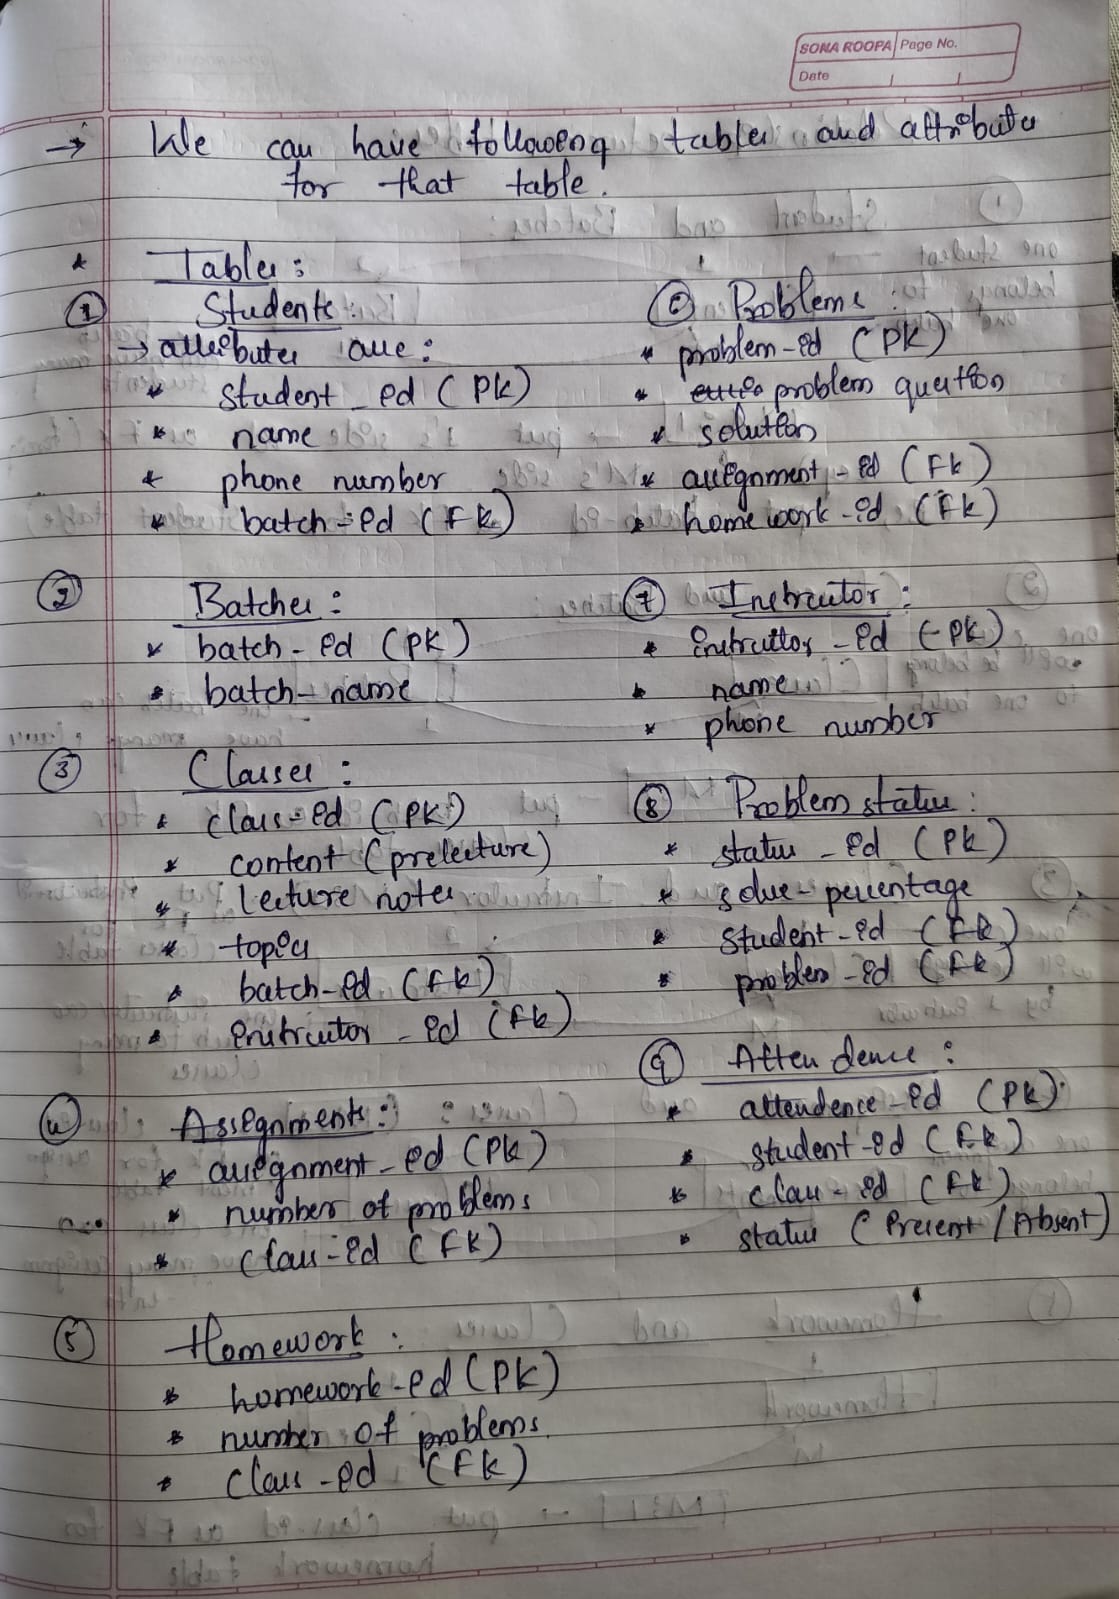 SONA ROOPA Page No.
Date
→ We can have following tables and attributes
for that table.
* Tables :
① Students :
→ attributes are :
* student_id (PK)
* name
* phone number
* batch-id (FK)
② Batches :
* batch-id (PK)
* batch-name
③ Classes :
* class-id (PK)
* content (prelecture)
* Lecture notes
* topics
* batch-id (FK)
* instructor-id (FK)
④ Assignments :
* assignment-id (PK)
* number of problems
* class-id (FK)
⑤ Homework :
* homework-id (PK)
* number of problems.
* class-id (FK)
⑥ Problems :
* problem-id (PK)
* problem question
* solution
* assignment-id (FK)
* home work-id (FK)
⑦ Instructor :
* instructor-id (PK)
* name
* phone number
⑧ Problem status :
* status-id (PK)
* solve-percentage
* student-id (FK)
* problem-id (FK)
⑨ Attendence :
* attendence-id (PK)
* student-id (FK)
* class-id (FK)
* status (Present/Absent)